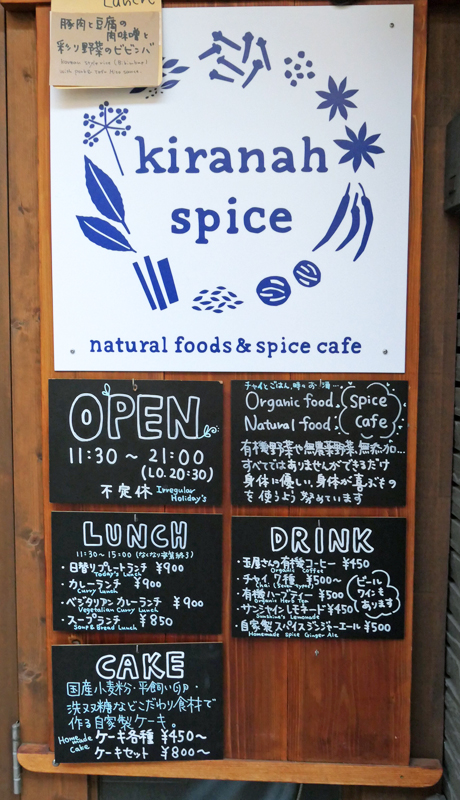 Lunch
豚肉と豆腐の
肉味噌と
彩り野菜のビビンバ
Korean style rice (Bibimbap)
with pork & tofu Miso sauce.
kiranah
spice
natural foods & spice cafe
OPEN
11:30 ～ 21:00
(L.O. 20:30)
不定休 Irregular
Holiday's
チャイとごはん、時々お酒…
Organic food. Spice
Natural food: Cafe
有機野菜や無農薬野菜、無添加...
すべてではありませんができるだけ
身体に優しい、身体が喜ぶもの
を使うよう努めています
LUNCH
11:30～15:00 (なくなり次第終了)
・日替りプレートランチ ¥900
Today's Lunch
・カレーランチ ¥900
Curry Lunch
・ベジタリアンカレーランチ ¥900
Vegetalian Curry Lunch
・スープランチ ¥850
Soup & Bread Lunch
DRINK
・玉屋さんの有機コーヒー ¥450
Organic Coffee
・チャイ 7種 ¥500～
Chai (Seven types)
・有機ハーブティー ¥500
Organic Herb Tea
・サンシャインレモネード ¥450
Sunshine's Lemonade
・自家製スパイスジンジャーエール ¥500
Homemade Spice Ginger Ale
ビール
ワインも
あります
CAKE
国産小麦粉・平飼い卵・
洗双糖などこだわり食材で
作る自家製ケーキ。
Homemade
Cake
ケーキ各種 ¥450～
ケーキセット ¥800～